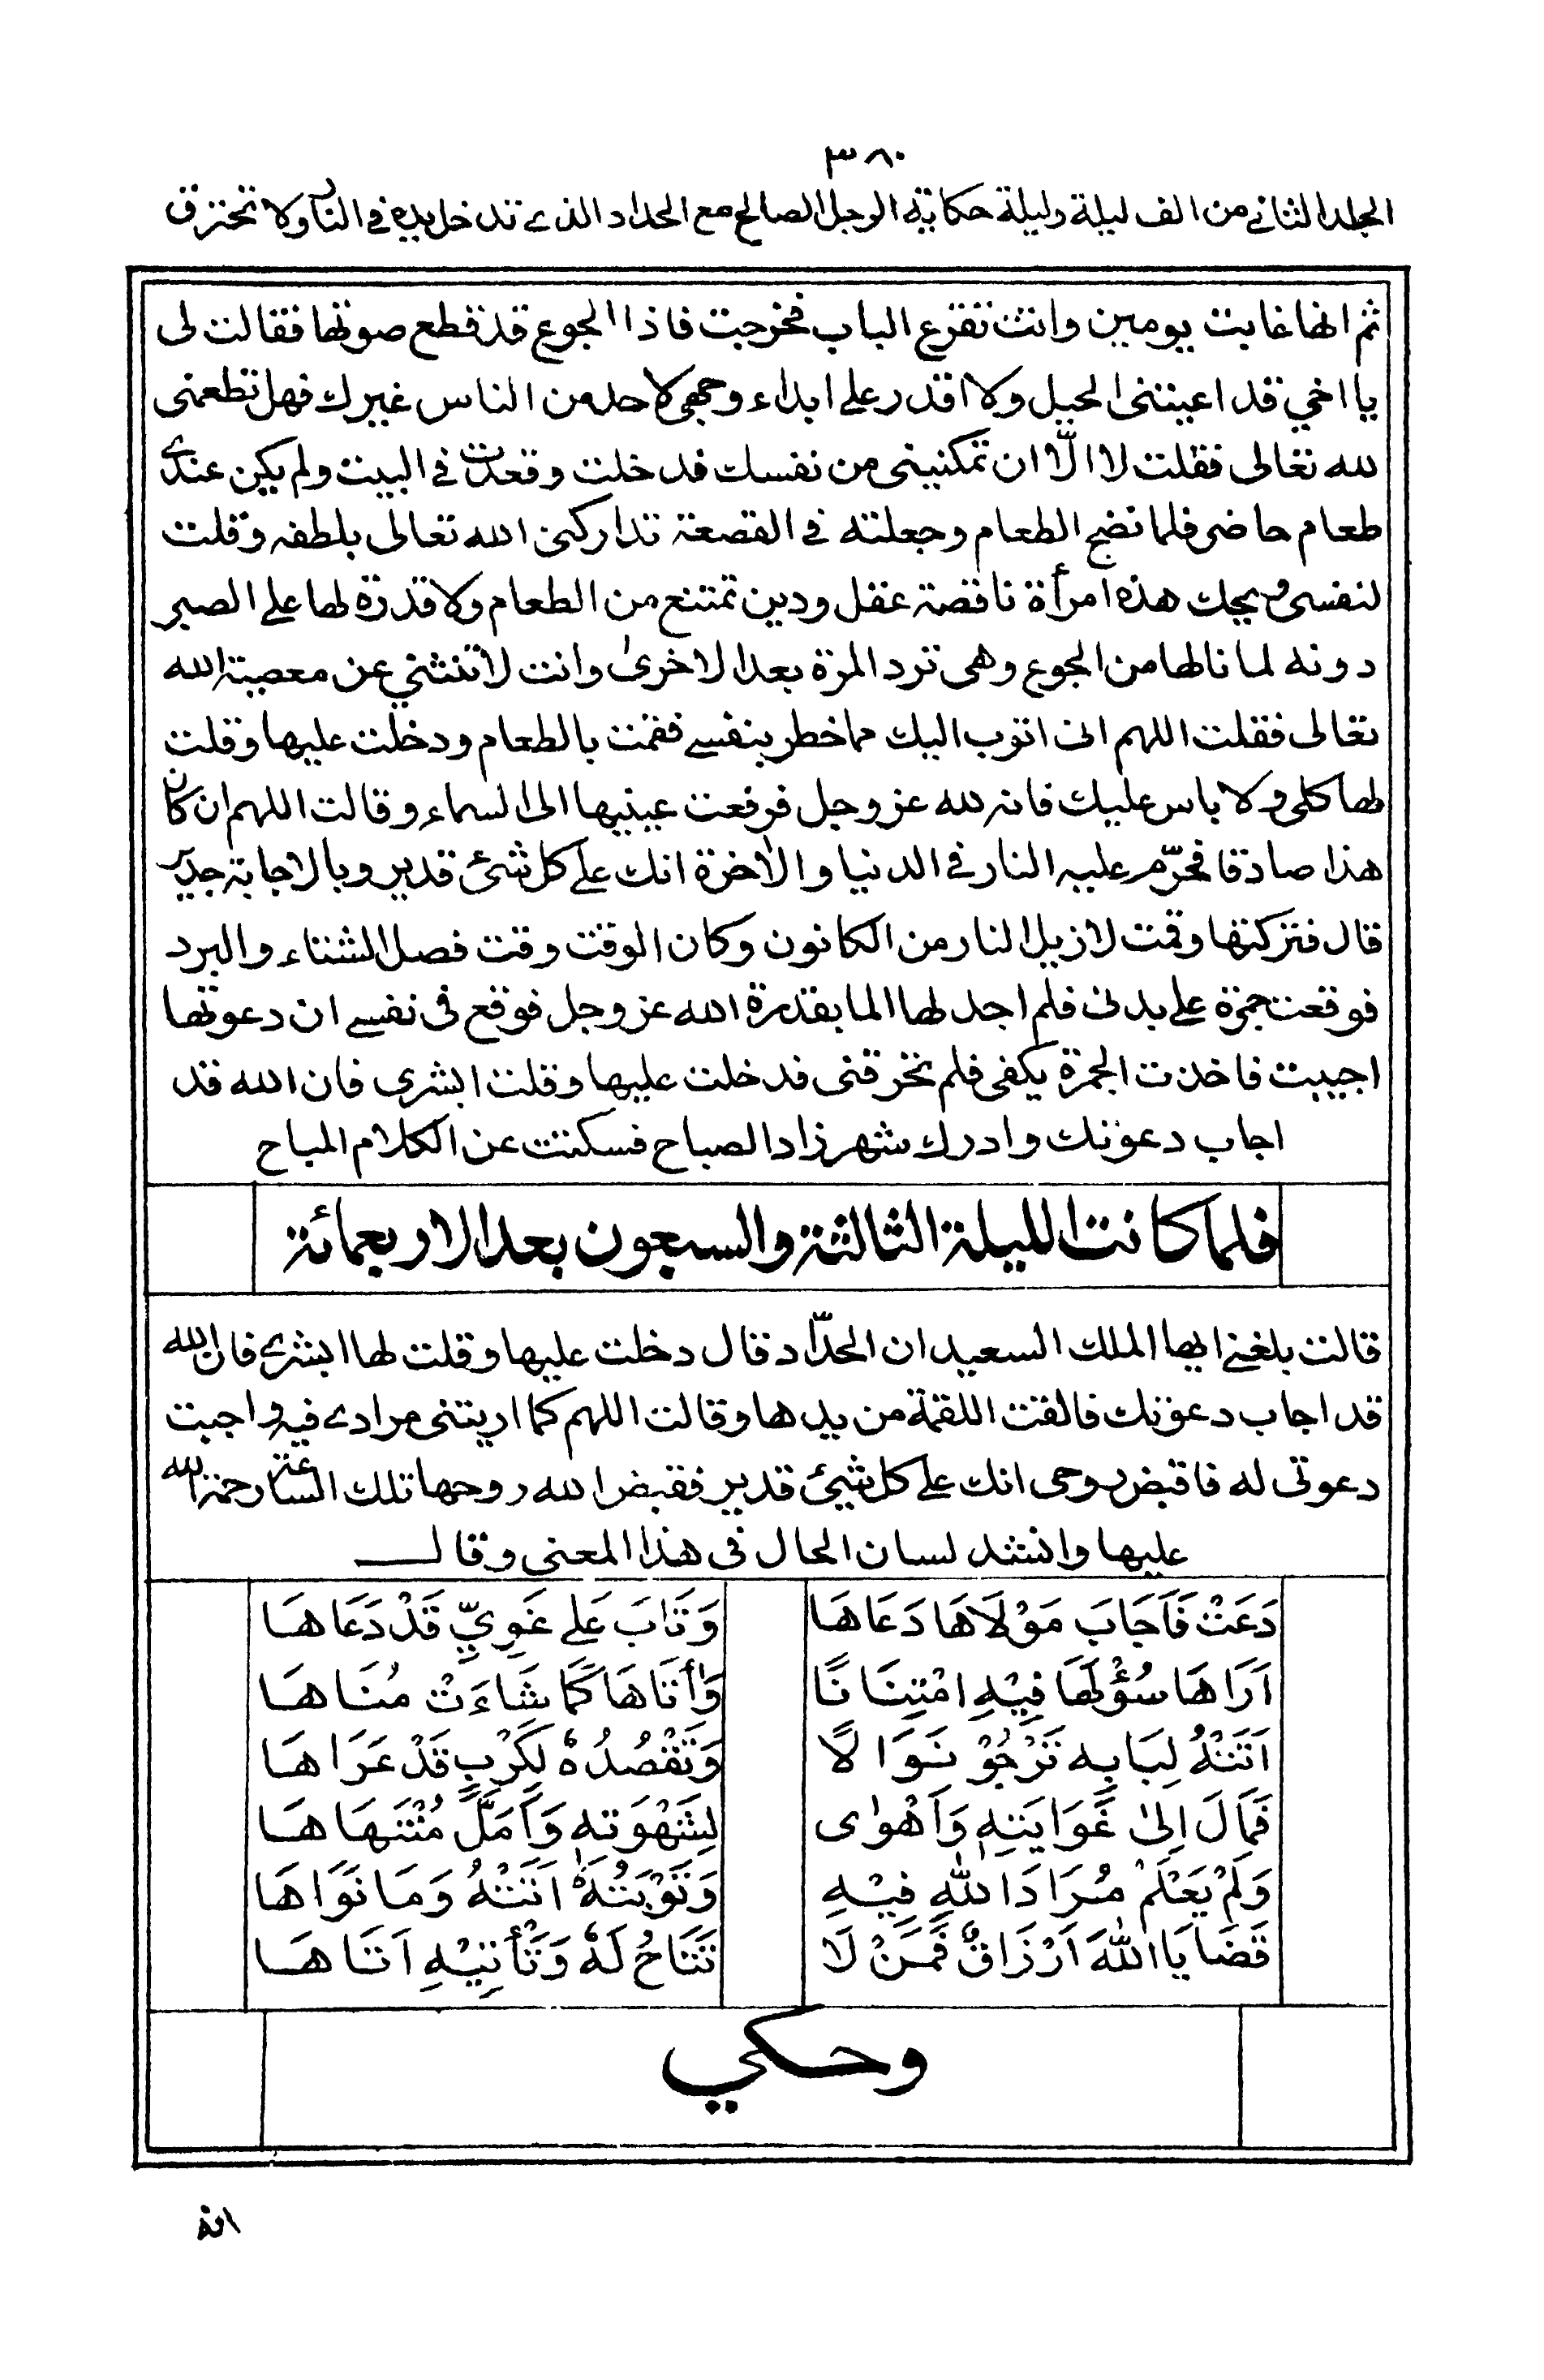 ٣٨٠
المجلد الثاني من الف ليلة وليلة حكاية الرجل الصالح مع الحداد الذي تدخل يده في النار ولا تحترق
ثم انها غابت يومين واتت تقرع الباب فخرجت فاذا الجوع قد قطع صوتها فقالت لى
يا اخي قد اعيتنى الحيل ولا اقدر على ابداء وجهى لاحد من الناس غيرك فهل تطعمنى
لله تعالى فقلت لا الّا ان تمكنينى من نفسك فدخلت وقعدت في البيت ولم يكن عندي
طعام حاضر فلما نضج الطعام وجعلته في القصعة تداركنى الله تعالى بلطفه وقلت
لنفسى ويحك هذه امرأة ناقصة عقل ودين تمتنع من الطعام ولا قدرة لها على الصبر
دونه لما نالها من الجوع وهى ترد المرة بعد الاخرى وانت لا تنثني عن معصية الله
تعالى فقلت اللهم انى اتوب اليك مما خطر بنفسي فقمت بالطعام ودخلت عليها وقلت
لها كلى ولا باس عليك فانه لله عز وجل فرفعت عينيها الى السماء وقالت اللهم ان كان
هذا صادقا فحرّم عليه النار في الدنيا والآخرة انك على كل شئ قدير وبالاجابة جدير
قال فتركتها وقمت لازيل النار من الكانون وكان الوقت وقت فصل الشتاء والبرد
فوقعت جمرة على بدنى فلم اجد لها الما بقدرة الله عز وجل فوقع فى نفسي ان دعوتها
اجيبت فاخذت الجمرة بكفى فلم تحرقنى فدخلت عليها وقلت ابشرى فان الله قد
اجاب دعوتك وادرك شهرزاد الصباح فسكتت عن الكلام المباح
فلما كانت الليلة الثالثة والسبعون بعد الاربعمائة
قالت بلغني ايها الملك السعيد ان الحدّاد قال دخلت عليها وقلت لها ابشري فان الله
قد اجاب دعوتك فالقت اللقمة من يدها وقالت اللهم كما اريتنى مرادي فيه واجبت
دعوتى له فاقبض روحى انك على كل شيئ قدير فقبض الله روحها تلك الساعة رحمة الله
عليها وانشد لسان الحال فى هذا المعنى وقال
دَعَتْ فَاَجَابَ مَوْلَاهَا دَعَاهَا وَتَابَ عَلى غَوِيٍّ قَدْ دَعَاهَا
اَرَاهَا سُؤْلَهَا فِيْهِ امْتِنَانًا وَأَتَاهَا كَمَا شَاءَتْ مُنَاهَا
اَتَتْهُ لِبَابِهِ تَرْجُوْ نَوَالًا وَتَقْصُدُهٗ لِكَرْبٍ قَدْ عَرَاهَا
فَمَالَ اِلىٰ غَوَايَتِهٖ وَاَهْوٰى لِشَهْوَتِهٖ وَاَمَّلَ مُشْتَهَاهَا
وَلَمْ يَعْلَمْ مُرَادَ اللّٰهِ فِيْهِ وَتَوْبَتُهٗ اَتَتْهُ وَمَا نَوَاهَا
قَضَايَا اللّٰهَ اَرْزَاقٌ فَمَنْ لَا تَتَاحُ لَهٗ وَتَأْتِيْهِ اَتَاهَا
وحكي
انه